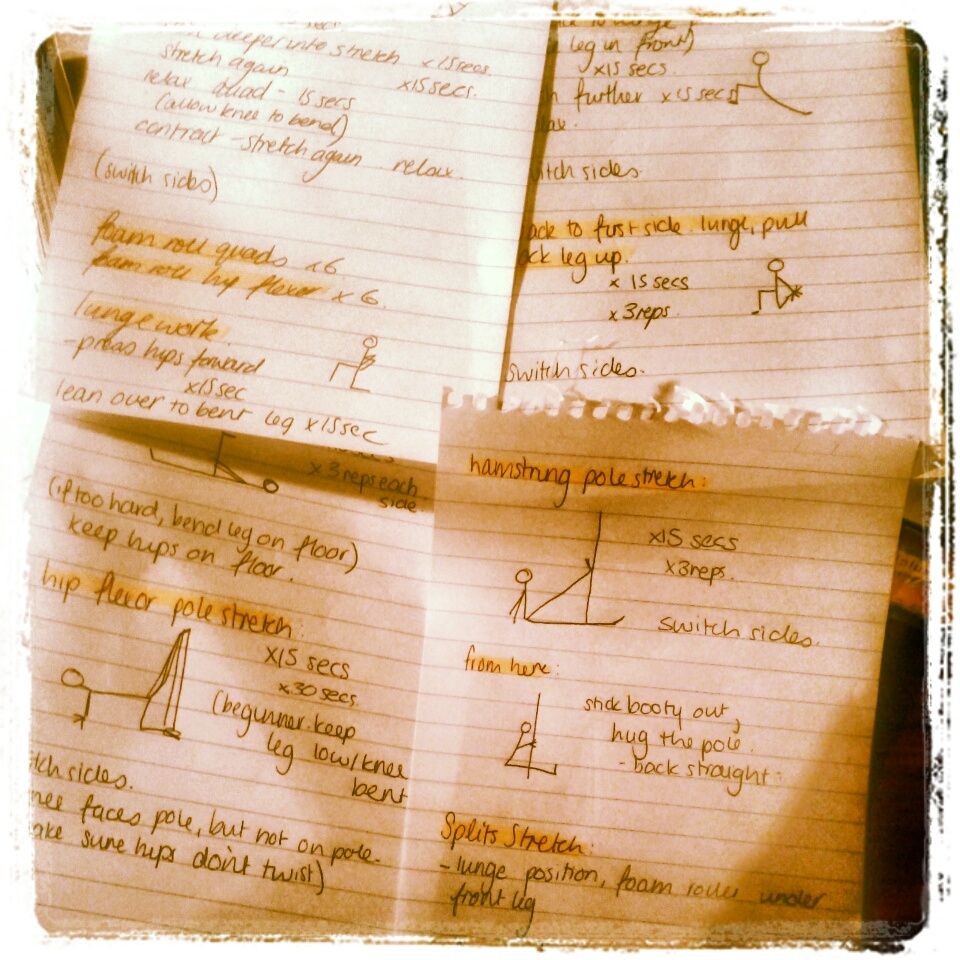 deeper into stretch x15secs
stretch again x15secs.
relax quad - 15 secs
(allow knee to bend)
contract - stretch again relax.
(switch sides)
foam roll quads x6
foam roll hip flexor x 6.
lunge work:
- press hips forward
x15 sec
lean over to bent leg x15sec
leg in front)
x15 secs
further x15 secs
switch sides.
back to first side lunge, pull
back leg up.
x 15 secs
x 3 reps.
switch sides.
x 3 reps each
side
(if too hard, bend leg on floor)
keep hips on floor.
hip flexor pole stretch:
x15 secs
x30 secs
(beginner keep
leg low/knee
bent
sides.
knee faces pole, but not on pole.
make sure hips don't twist)
hamstring pole stretch:
x15 secs
x3reps.
switch sides.
from here:
stick booty out,
hug the pole.
- back straight.
Splits Stretch:
- lunge position, foam roller under
front leg